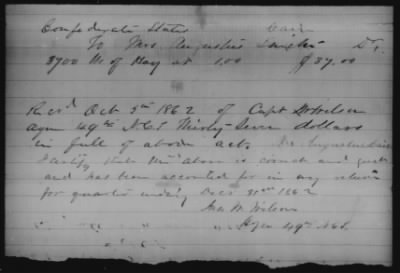 Confederate States
To Mrs. Augustus Dr.
3700 lbs of Hay at 1.00 $37.00
Recd Oct 5th 1862 of Capt Wilson
aqm 49th N.C.T. Thirty Seven dollars
in full of above act. Mrs Augustus
I certify that the above is correct and just
and has been accounted for in my return
for quarter ending Dec 31st 1862
Geo W. Wilson
49th N.C.T.